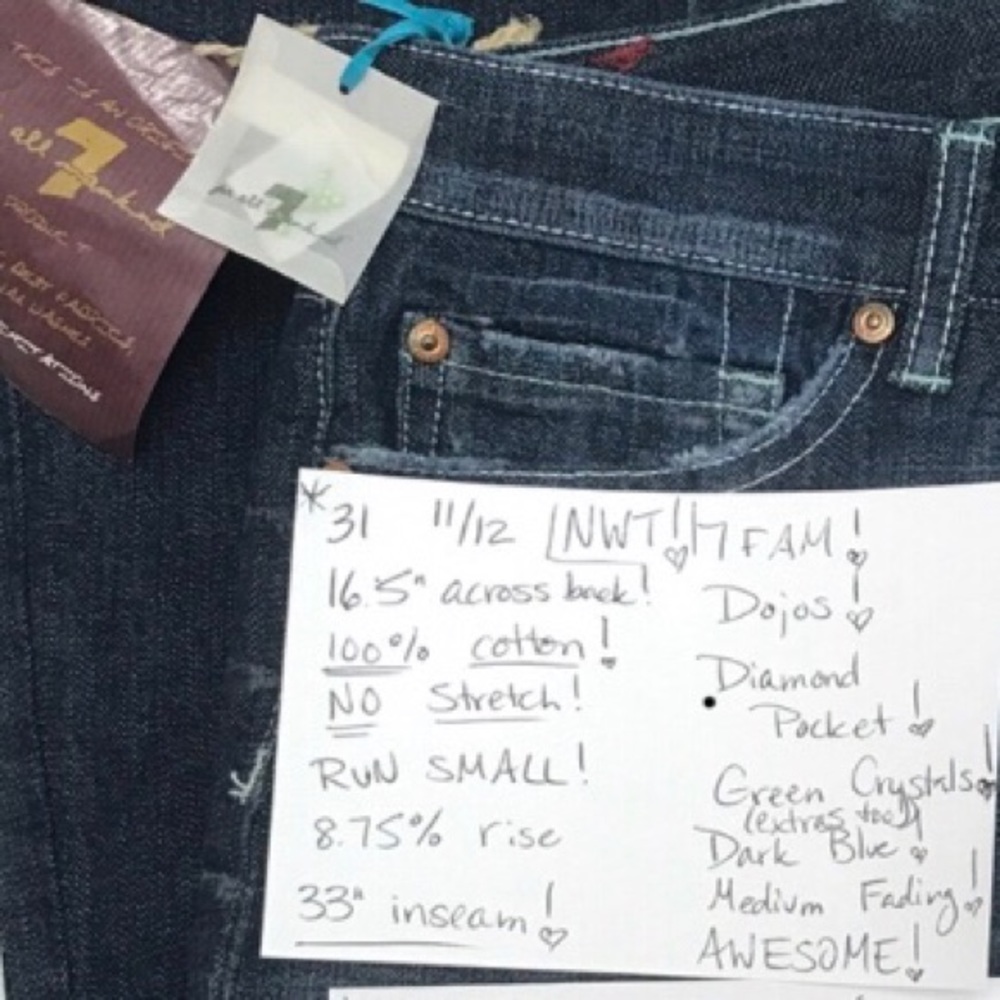 THIS IS AN
all 7 mankind
PRODUCT
for all 7 mankind
* 31 11/12 NWT! 7 FAM!
16.5" across back!
Dojos!
100% cotton!
NO Stretch!
Diamond
Pocket!
RUN SMALL!
Green Crystals!
(extras too!)
8.75% rise
Dark Blue
33" inseam!
Medium Fading!
AWESOME!